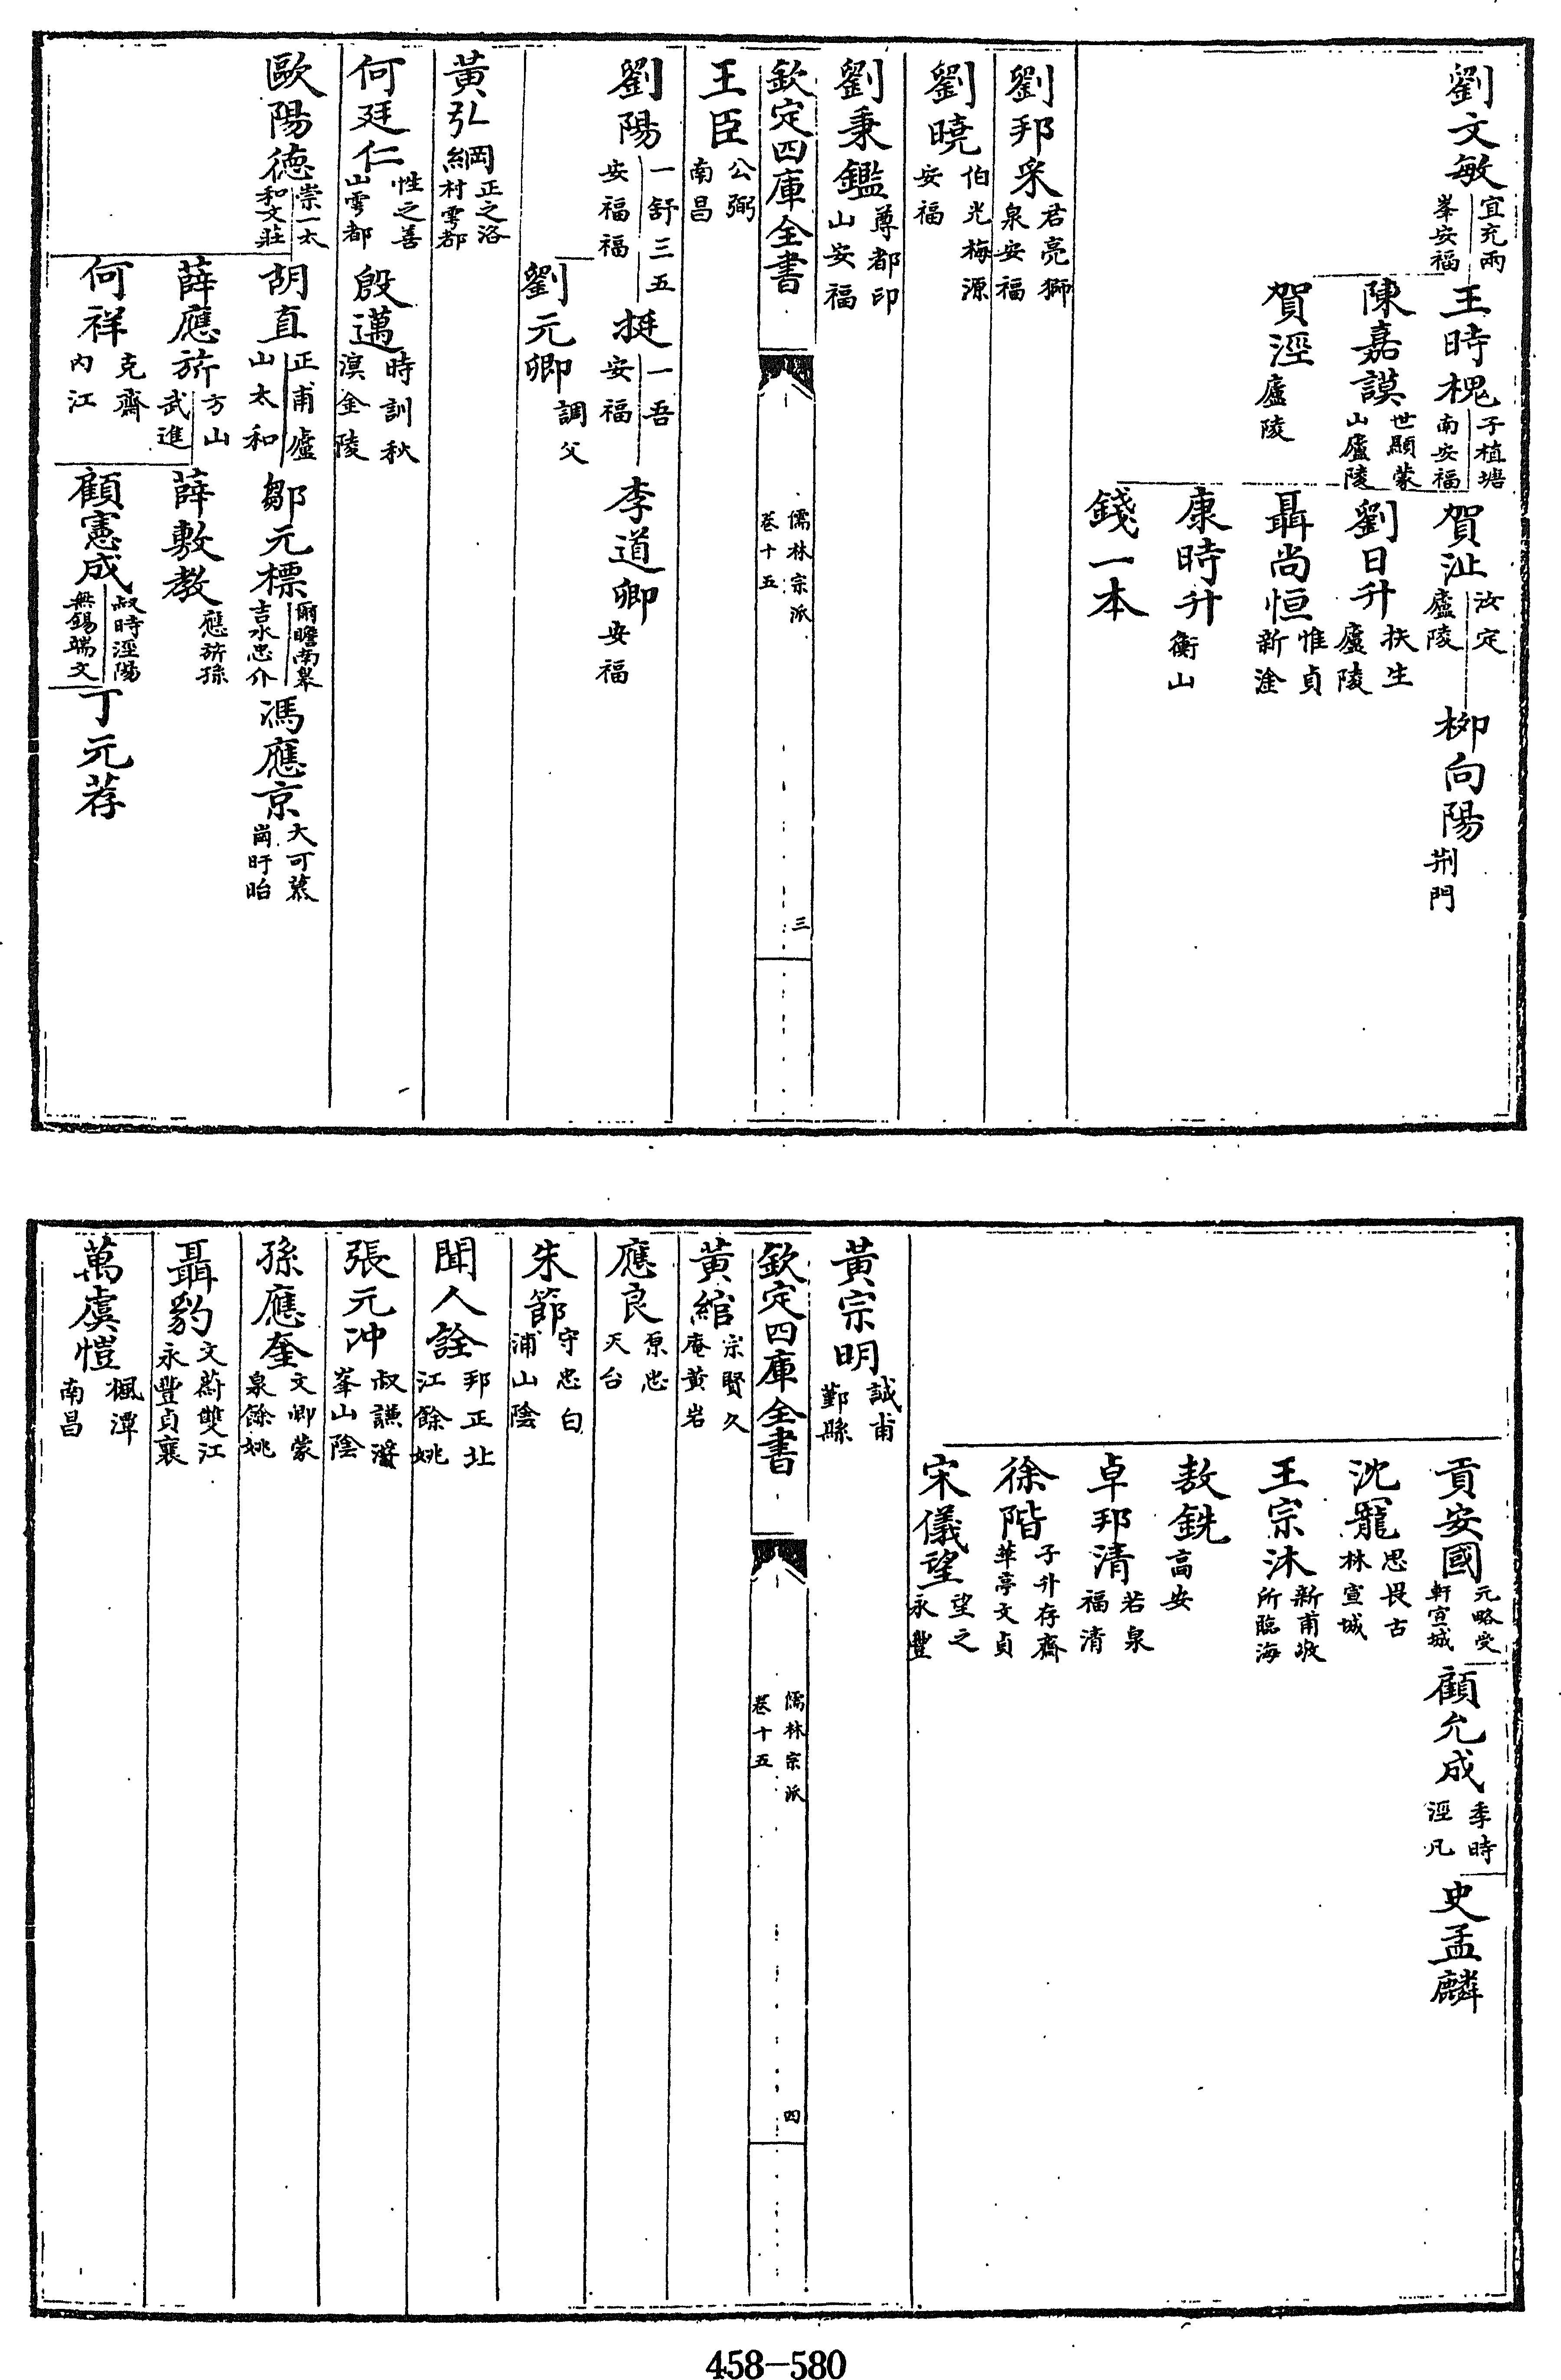 劉文敏 宜充兩峯安福
王時槐 子植塘南安福
賀沚 汝定廬陵
柳向陽 荆門
陳嘉謨 世顯蒙山廬陵
劉日升 扶生廬陵
賀涇 廬陵
聶尚恒 惟貞新淦
康時升 衡山
錢一本
劉邦采 君亮獅泉安福
劉曉 伯光梅源安福
劉秉鑑 尊都印山安福
欽定四庫全書
儒林宗派
卷十五
三
王臣 公弼南昌
劉陽 一舒三五安福福
挺 一吾安福
李道卿 安福
劉元卿 調父
黃弘綱 正之洛村雩都
何廷仁 性之善山雩都
殷邁 時訓秋溟金陵
歐陽德 崇一太和文莊
胡直 正甫廬山太和
鄒元標 爾瞻南皋吉水忠介
馮應京 大可慕崗盱眙
薛應旂 方山武進
薛敷教 應旂孫
何祥 克齋內江
顧憲成 叔時涇陽無錫端文
丁元荐
貢安國 元略受軒宣城
顧允成 季時涇凡
史孟麟
沈寵 思畏古林宣城
王宗沐 新甫敬所臨海
敖銑 高安
卓邦清 若泉福清
徐階 子升存齋華亭文貞
宋儀望 望之永豐
黃宗明 誠甫鄞縣
欽定四庫全書
儒林宗派
卷十五
四
黃綰 宗賢久庵黃岩
應良 原忠天台
朱節 守忠白浦山陰
聞人詮 邦正北江餘姚
張元冲 叔謙浮峯山陰
孫應奎 文卿蒙泉餘姚
聶豹 文蔚雙江永豐貞襄
萬虞愷 楓潭南昌
458-580